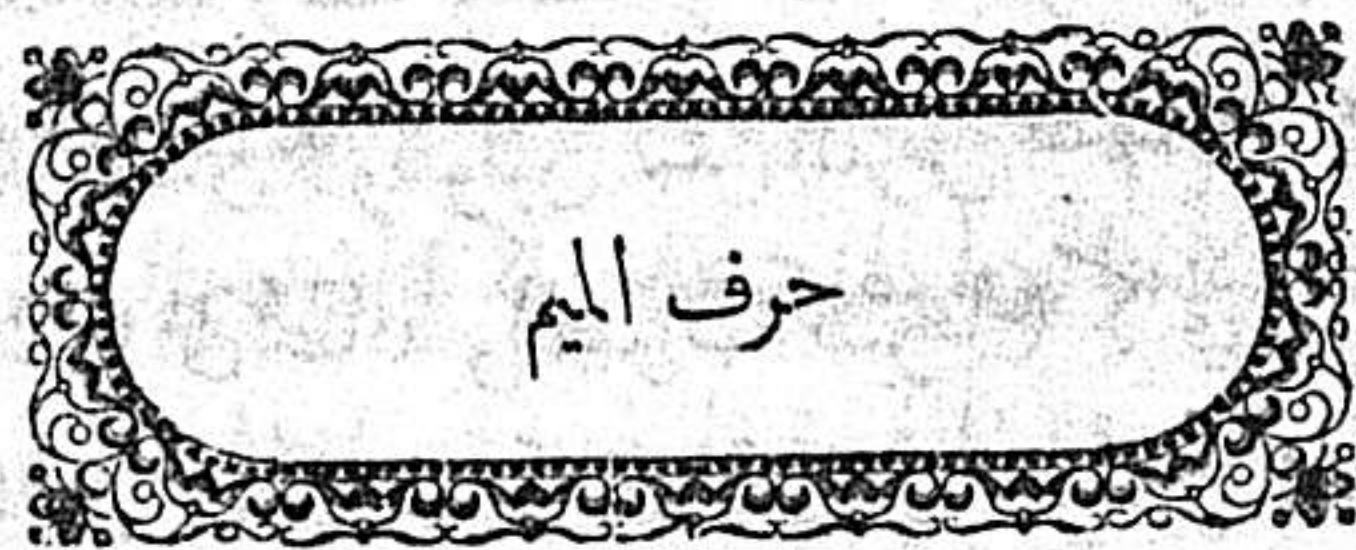 حرف الميم